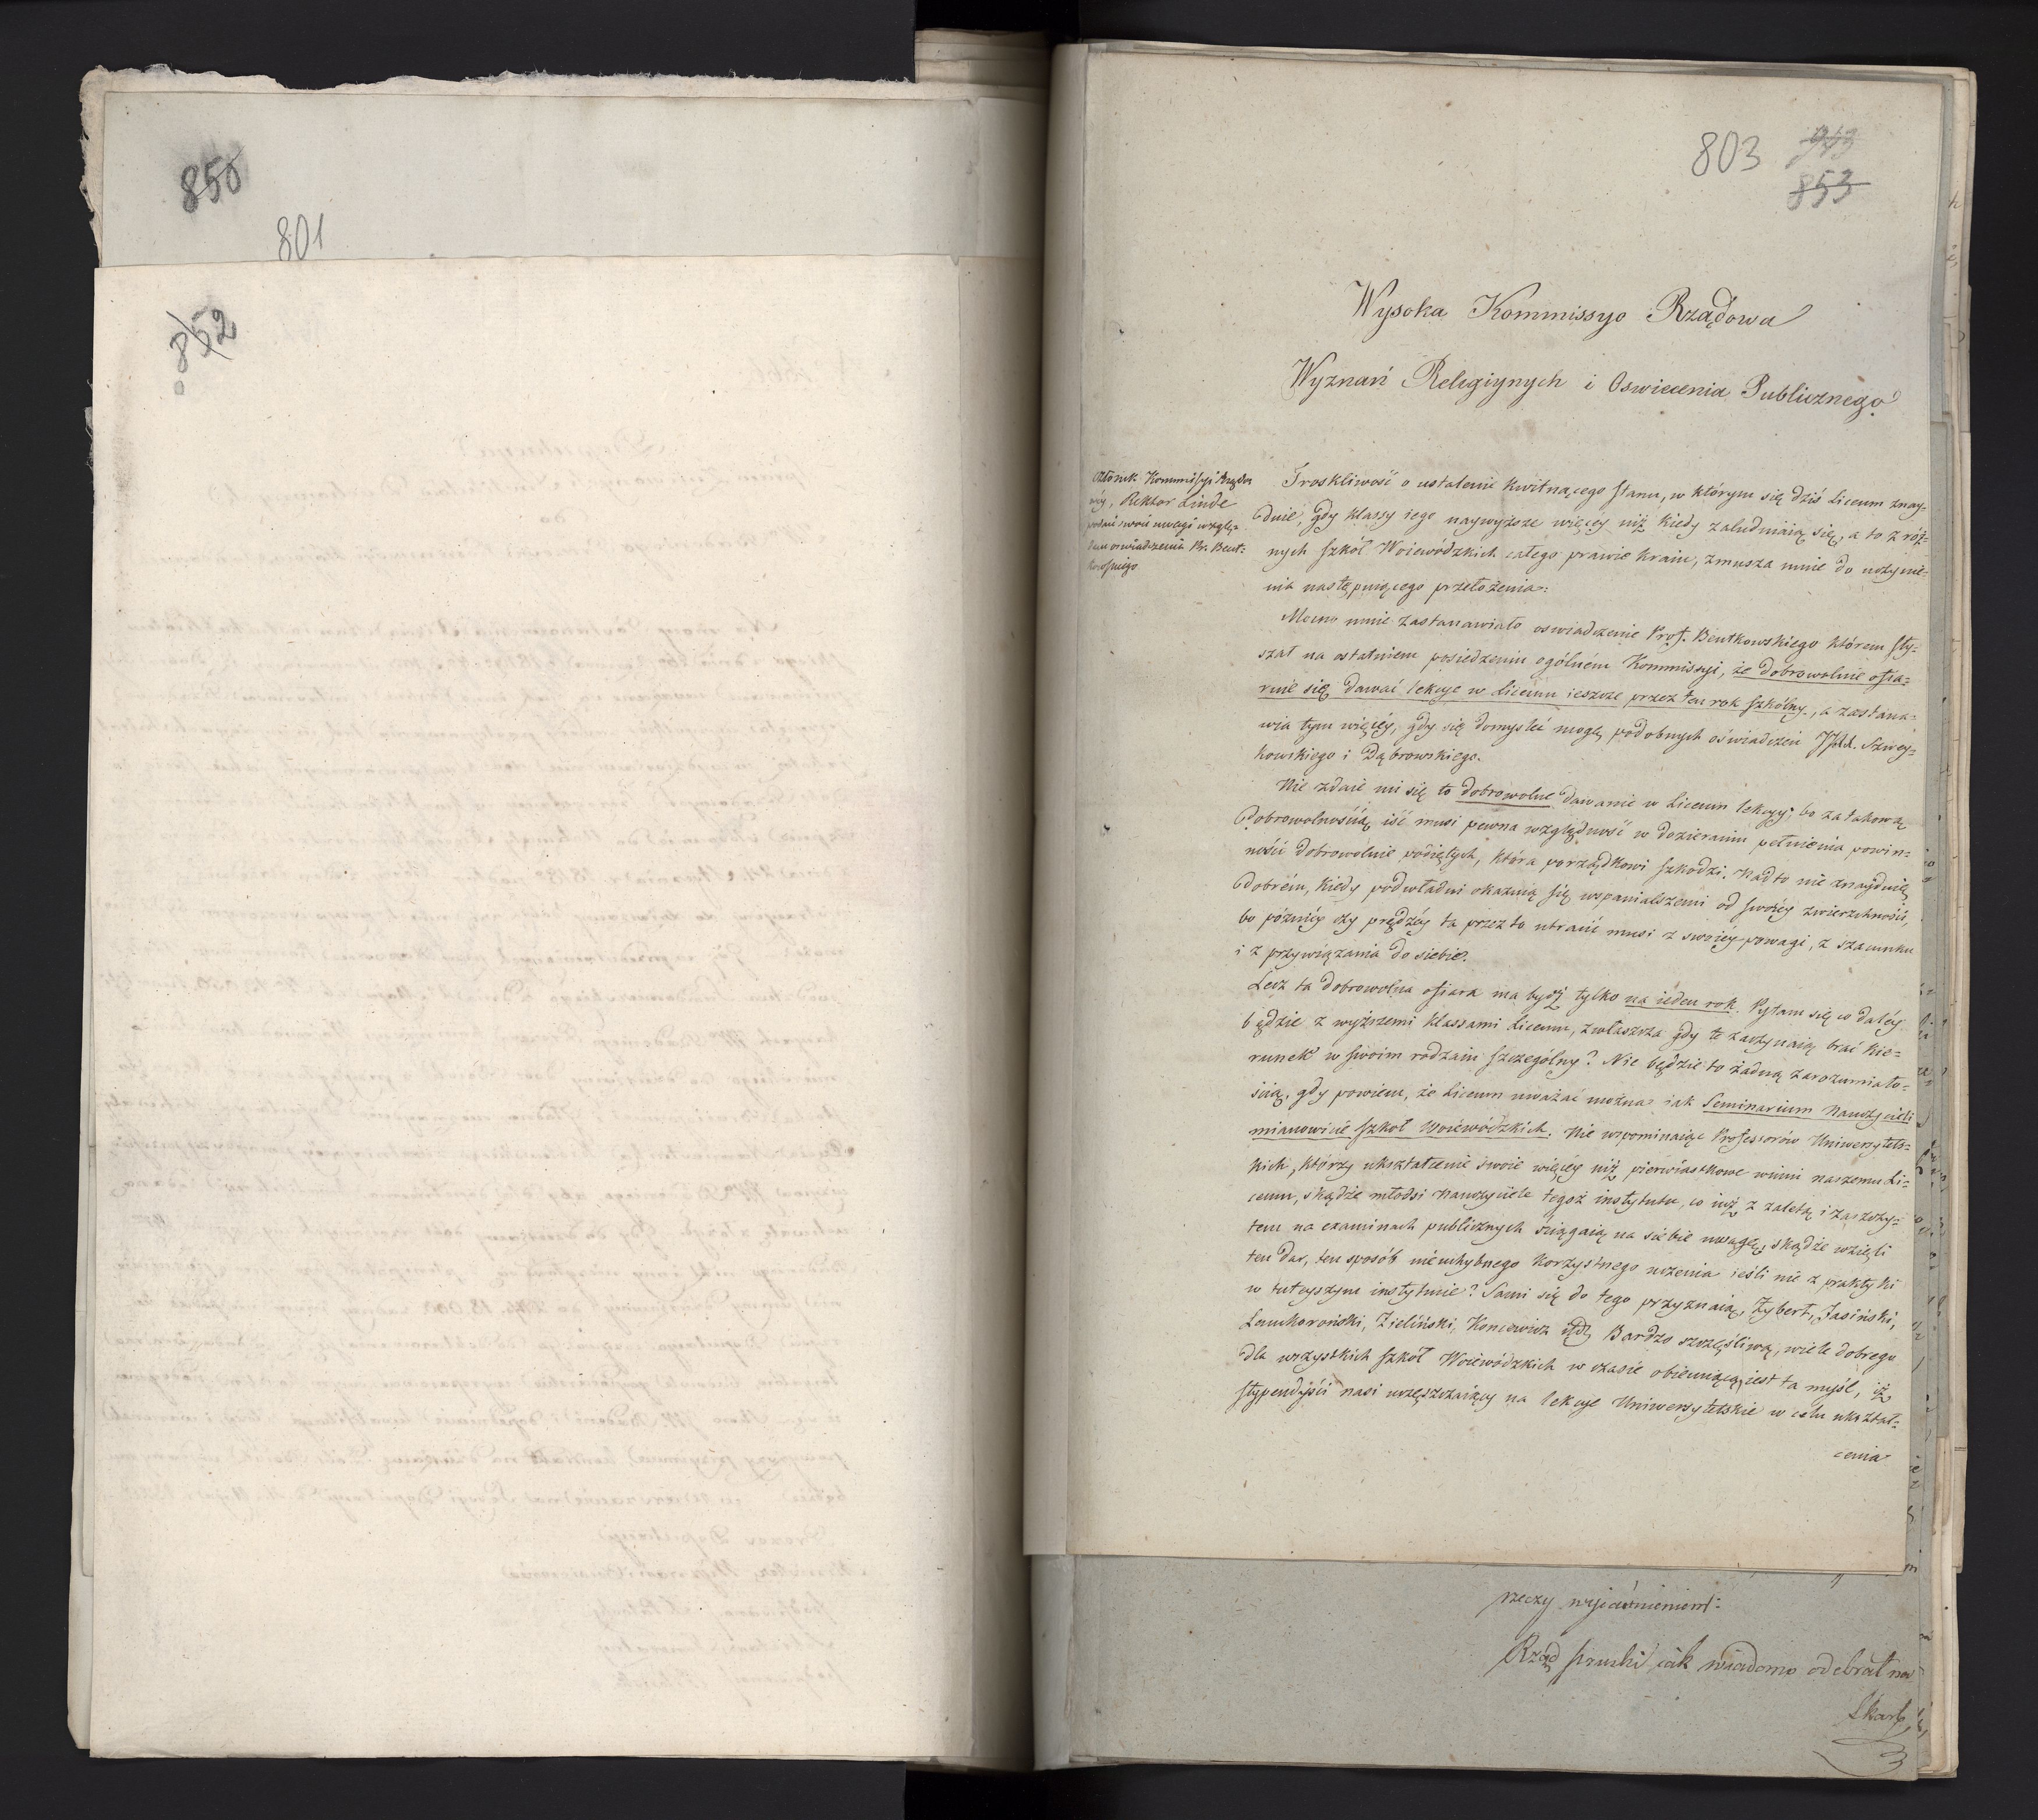 850
801
852
803 943
853
Wysoka Kommissyo Rządowa
Wyznań Religiynych i Oswiecenia Publicznego
Członek Kommissyi Rządo
wéy, Rektor Linde
podaie swoie uwagi wzglę-
dem oswiadczenia Pr. Bent-
kowskiego
Troskliwość o ustalenie kwitnącego stanu, w którym się dziś Liceum znay-
dnie, gdy klassy iego naywyższe więcey niż kiedy zaludniaią się, a to z róż-
nych szkół Woiewódzkich całego prawie kraiu, zmusza mnie do uczynie-
nia następuiącego przełożenia:
Mocno mnie zastanawiało oswiadczenie Prof. Bentkowskiego którem sły-
szał na ostatniem posiedzeniu ogólném Kommissyi, że dobrowolnie ofia-
ruie się dawać lekcye w Liceum ieszcze przez ten rok szkólny, a zastana-
wia tym więcéy, gdy się domyślić mogę podobnych oświadczeń Szwey-
kowskiego i Dąbrowskiego.
Nie zdaie mi się to dobrowolne dawanie w Liceum lekcyy; bo za takową
dobrowolnością iść musi pewna względność w dozieraniu pełnienia powin-
ności dobrowolnie podiętych, która porządkowi szkodzi. Nadto nie znayduię
dobrém, kiedy podwładni okazuią się wspanialszemi od swoiéy zwierzchności,
bo późniéy czy prędzéy ta przez to utracić musi z swoiéy powagi, z szacunku
i z przywiązania do siebie.
Lecz ta dobrowolna ofiara ma bydź tylko na ieden rok. Pytam się co daléy
będzie z wyższemi klassami Liceum, zwłaszcza gdy te zaczynaią brać kie-
runek w swoim rodzaiu szczególny? Nie będzie to żadną zarozumiało-
ścią, gdy powiem, że Liceum uważać można iak Seminarium nauczycieli
mianowicie szkół Woiewódzkich. Nie wspominaiąc Professorów Uniwersytets-
kich, którzy ukształcenie swoie więcéy niż pierwiastkowe winni naszemu Li-
ceum, skądże młodsi nauczyciele tegoż instytutu, co iuż z zaletą i zaszczy-
tem na examinach publicznych ściągaią na siebie uwagę; skądże wzięli
ten dar, ten sposób nieuchybnego korzystnego uczenia ieśli nie z praktyki
w tuteyszym instytucie? Sami się do tego przyznaią, Zybert, Jasiński,
Lanckoroński, Zieliński, Koncewicz itd. Bardzo szczęśliwą, wiele dobrego
dla wszystkich szkół Woiewódzkich w czasie obiecuiącą, iest ta myśl, iż
stypendyści nasi uczęszczaiący na lekcye Uniwersytetskie w celu ukształ-
cenia
rzeczy wyiaśnieniem:
Rząd pruski iak wiadomo odebrał na
Skarb